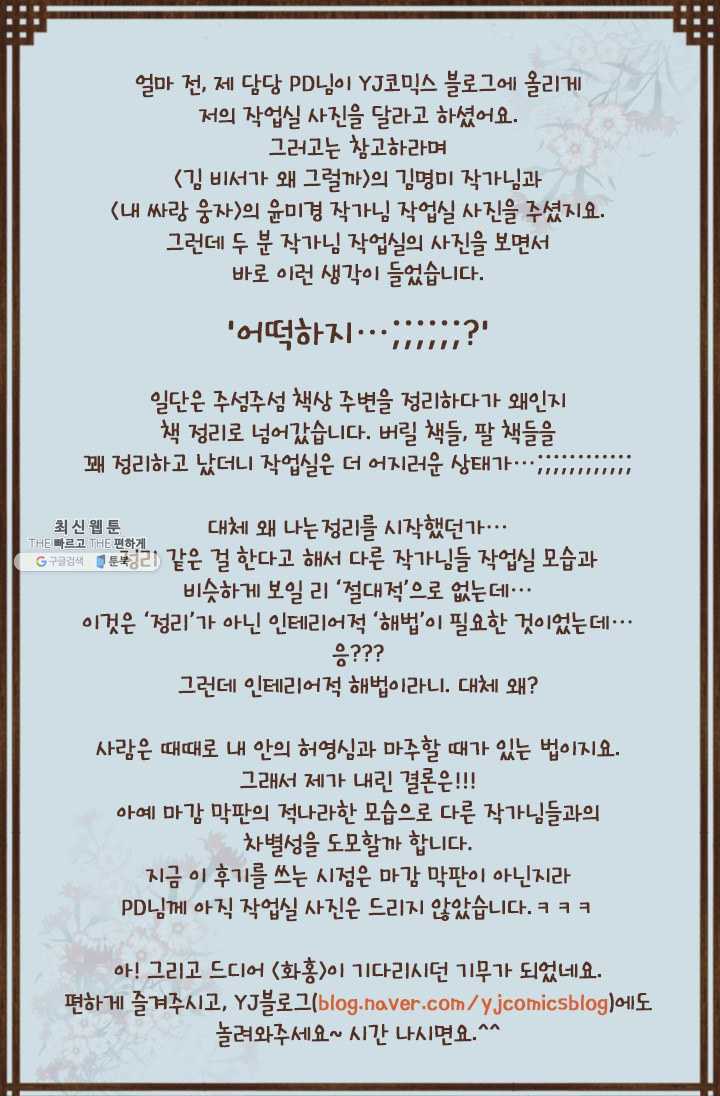 얼마 전, 제 담당 PD님이 YJ코믹스 블로그에 올리게
저의 작업실 사진을 달라고 하셨어요.
그러고는 참고하라며
<김 비서가 왜 그럴까>의 김명미 작가님과
<내 싸랑 웅자>의 윤미경 작가님 작업실 사진을 주셨지요.
그런데 두 분 작가님 작업실의 사진을 보면서
바로 이런 생각이 들었습니다.
'어떡하지…;;;;;;?'
일단은 주섬주섬 책상 주변을 정리하다가 왜인지
책 정리로 넘어갔습니다. 버릴 책들, 팔 책들을
꽤 정리하고 났더니 작업실은 더 어지러운 상태가…;;;;;;;;;;;;
대체 왜 나는정리를 시작했던가…
최신웹툰
THE빠르고 THE편하게
G 구글검색 툰북
정리 같은 걸 한다고 해서 다른 작가님들 작업실 모습과
비슷하게 보일 리 '절대적'으로 없는데…
이것은 '정리'가 아닌 인테리어적 '해법'이 필요한 것이었는데…
응???
그런데 인테리어적 해법이라니. 대체 왜?
사람은 때때로 내 안의 허영심과 마주할 때가 있는 법이지요.
그래서 제가 내린 결론은!!!
아예 마감 막판의 적나라한 모습으로 다른 작가님들과의
차별성을 도모할까 합니다.
지금 이 후기를 쓰는 시점은 마감 막판이 아닌지라
PD님께 아직 작업실 사진은 드리지 않았습니다.ㅋㅋㅋ
아! 그리고 드디어 <화홍>이 기다리시던 기무가 되었네요.
편하게 즐겨주시고, YJ블로그(blog.naver.com/yjcomicsblog)에도
놀려와주세요~ 시간 나시면요.^^